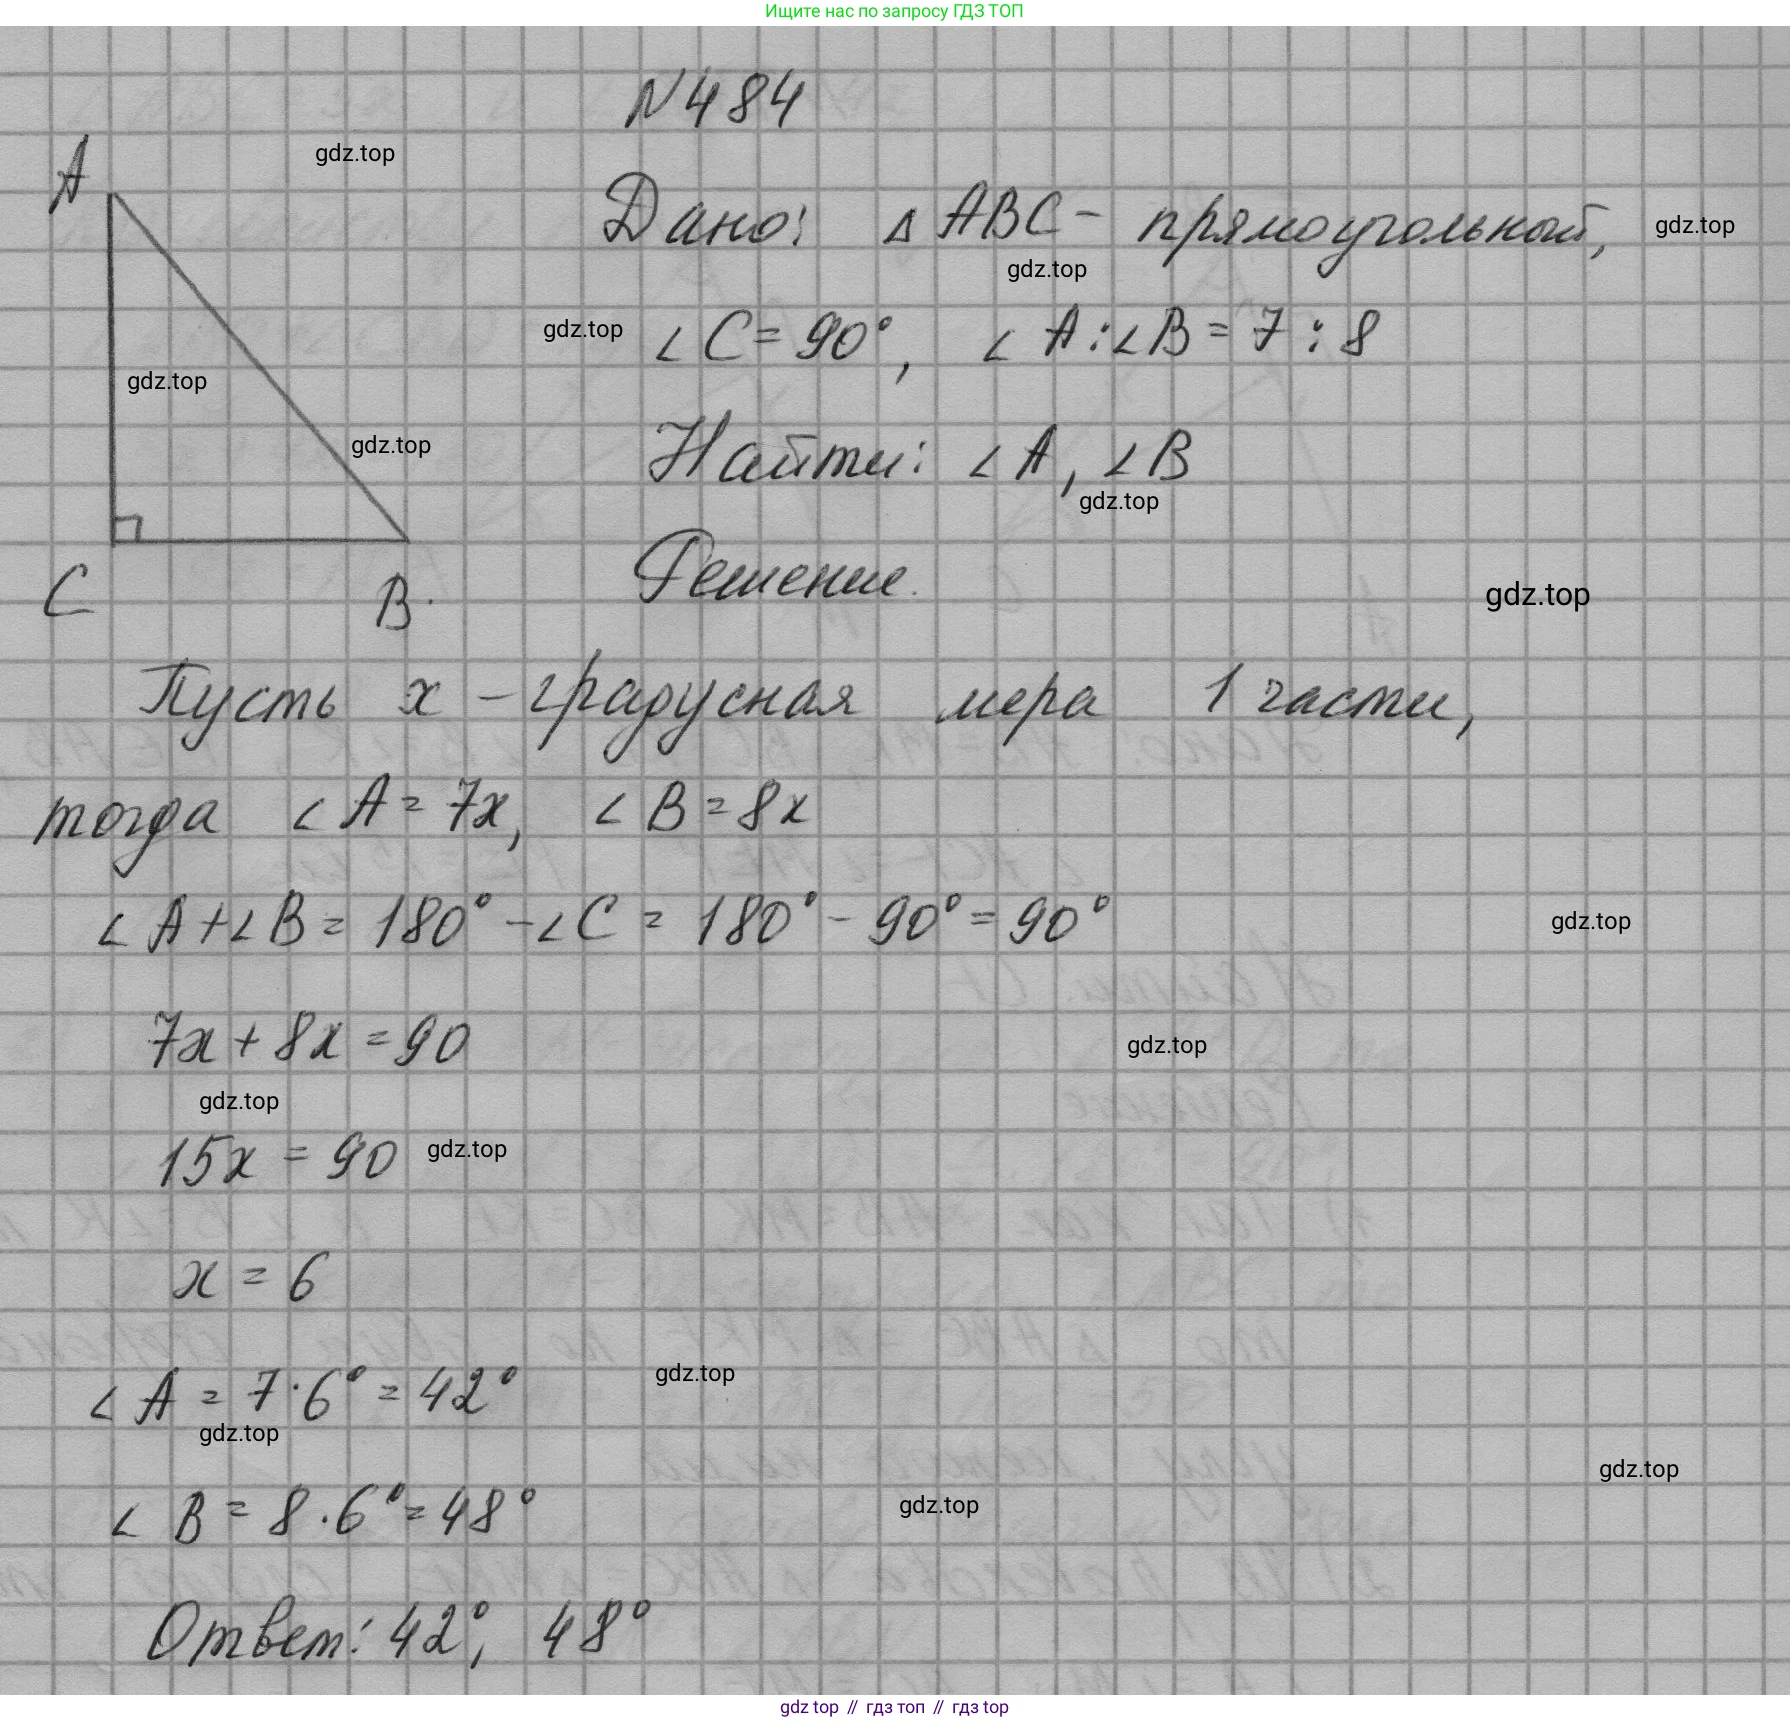 Ищите нас по запросу ГДЗ ТОП
N 484
A
gdz.top
Дано: Δ ABC - прямоугольный,
gdz.top
gdz.top
gdz.top
∠ C = 90°, ∠ A : ∠ B = 7 : 8
gdz.top
gdz.top
Найти: ∠ A, ∠ B
gdz.top
C
B
Решение.
gdz.top
Пусть x - градусная мера 1 части,
тогда ∠ A = 7x, ∠ B = 8x
∠ A + ∠ B = 180° - ∠ C = 180° - 90° = 90°
gdz.top
7x + 8x = 90
gdz.top
gdz.top
15x = 90
gdz.top
x = 6
∠ A = 7 · 6° = 42°
gdz.top
gdz.top
gdz.top
∠ B = 8 · 6° = 48°
gdz.top
Ответ: 42°, 48°
gdz top // гдз топ // gdz top